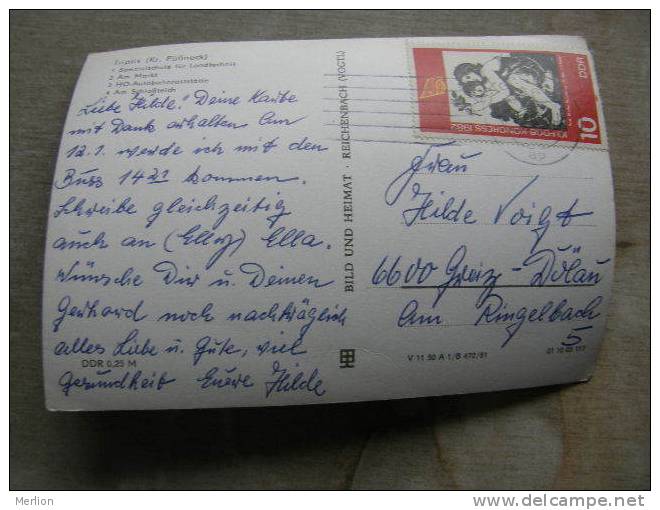 Triptis (Kr. Pößneck)
1 Spezialschule für Landtechnik
2 Am Markt
3 HO-Autobahnraststätte
4 Am Schloßteich
Liebe Hilde! Deine Karte
mit Dank erhalten. Am
12.1. werde ich mit den
Buss 14 21 kommen.
Schreibe gleichzeitig
auch an (Elly) Ella.
Wünsche Dir u. Deinen
Gerhard noch nachträglich
alles Liebe u. Gute, viel
Gesundheit Euere Hilde
DDR 0,25 M
BILD UND HEIMAT · REICHENBACH (VOGTL)
KONGRESS 1982
DDR
10
Frau
Hilde Voigt
6600 Greiz-Dölau
Am Ringelbach
5
V 11 50 A 1/B 472/81
01 10 03 117
Merlion
http://www.delcampe.net